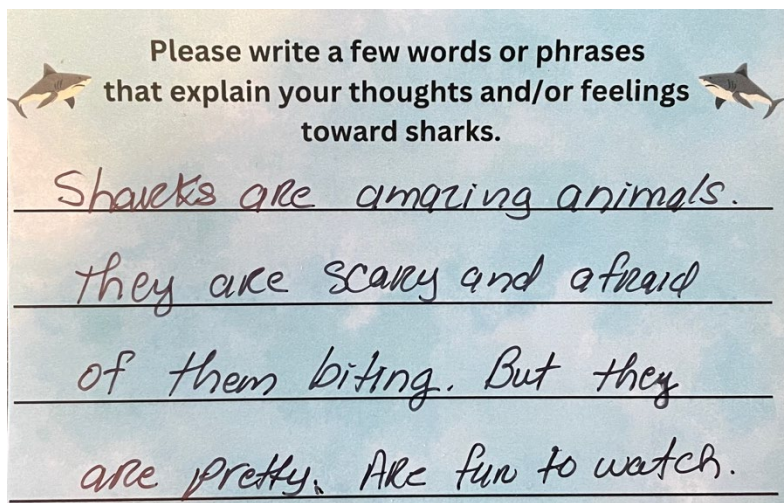 Please write a few words or phrases
that explain your thoughts and/or feelings
toward sharks.
Sharks are amazing animals.
they are scary and afraid
of them biting. But they
are pretty. Are fun to watch.